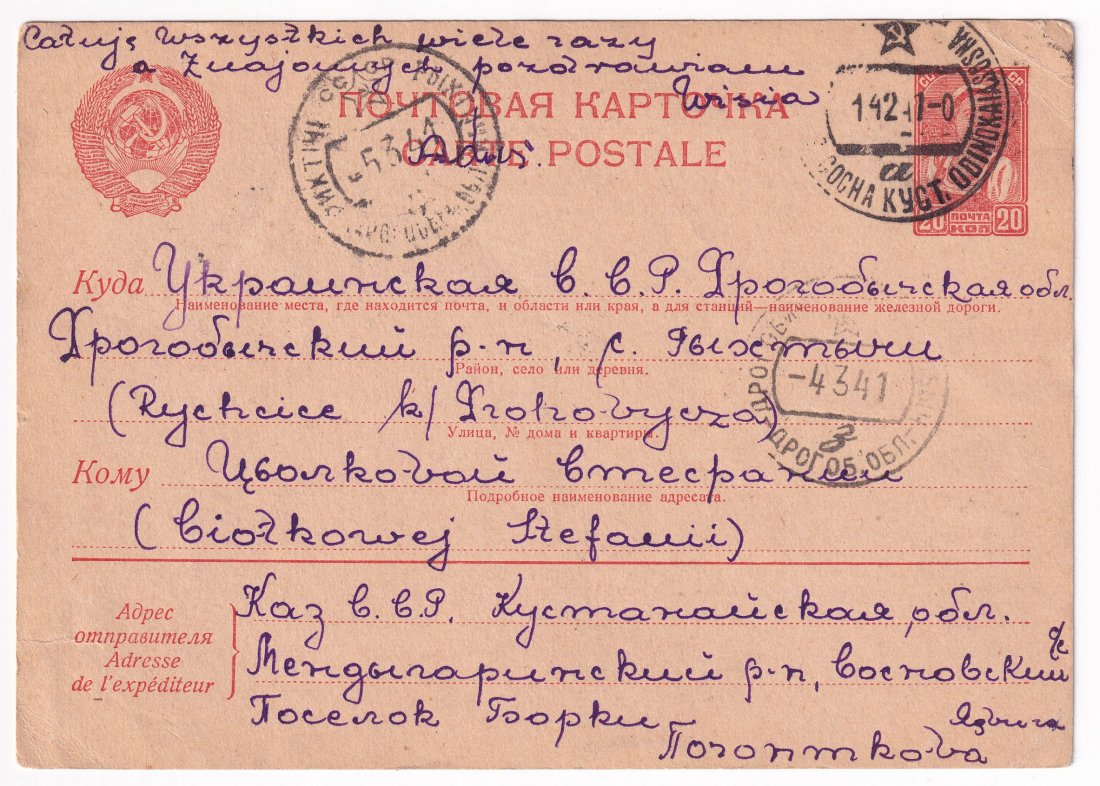 Całuję wszystkich wiele razy
a znajomych pozdrawiam
Wisia
ПОЧТОВАЯ КАРТОЧКА
CARTE POSTALE
14241-0
a
СОСНА КУСТ. ODINOKAIA SOSNA
ПОЧТА
20 КОП 20
-5.3.41
Куда Украинская С.С.Р. Дрогобычская обл.
Наименование места, где находится почта, и области или края, а для станций—наименование железной дороги.
Дрогобычский р-н, с. Рыхтычи
Район, село или деревня.
-4 3 41
(Rychcice k/Drohobycza)
Улица, № дома и квартиры.
ДРОГОБ. ОБЛ.
Кому Цьолковой Стефании
Подробное наименование адресата.
(Ciołkowej Stefanii)
Адрес
отправителя
Adresse
de l'expéditeur
Каз С.С.Р. Кустанайская обл.
Мендыгаринский р-н, Сосновский с/с
Поселок Борки